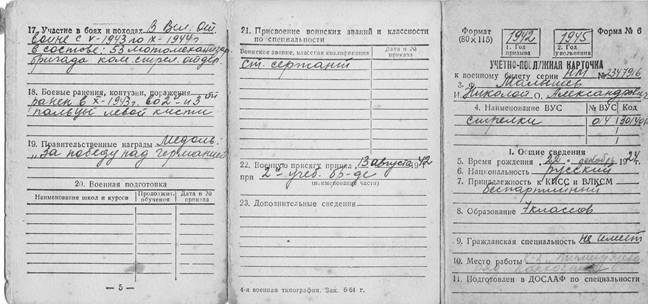 17. Участие в боях и походах В Вел. От.
войне с V-1943г по X-1944г
в составе: 53 мотомеханизир.
бригада ком. стрел. отдел.
18. Боевые ранения, контузии, поражения
ранен в X-1943г. во 2-и 3 ой
пальцы левой кисти
19. Правительственные награды Медаль:
"За победу над Германией"
20. Военная подготовка
Наименование школ и курсов
Продолжит. обучения
Дата и № приказа
— 5 —
21. Присвоение воинских званий и классности
по специальности
Воинское звание, классная квалификация
Дата и № приказа
Ст. сержант
22. Военную присягу принял 13 августа 1942
при 2й учеб. бр-де
(наименование части)
23. Дополнительные сведения
4-я военная типография. Зак. 6-64 г.
Формат
(80×115)
1942
1. Год призыва
1945
2. Год увольнения
Форма № 6
УЧЕТНО-ПОСЛУЖНАЯ КАРТОЧКА
к военному билету серии НМ № 2347916
3. Ф. Малышев
И. Николай О. Александрович
4. Наименование ВУС
№ ВУС
Код
стрелки
04
1. Общие сведения
5. Время рождения 20 декабря 1924
6. Национальность русский
7. Принадлежность к КПСС и ВЛКСМ
беспартийный
8. Образование 7 классов
9. Гражданская специальность не имеет
10. Место работы
11. Подготовлен в ДОСААФ по специальности